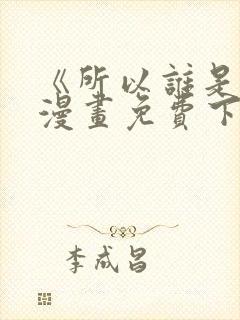 《所以誰是
漫畫免費下
李成昌